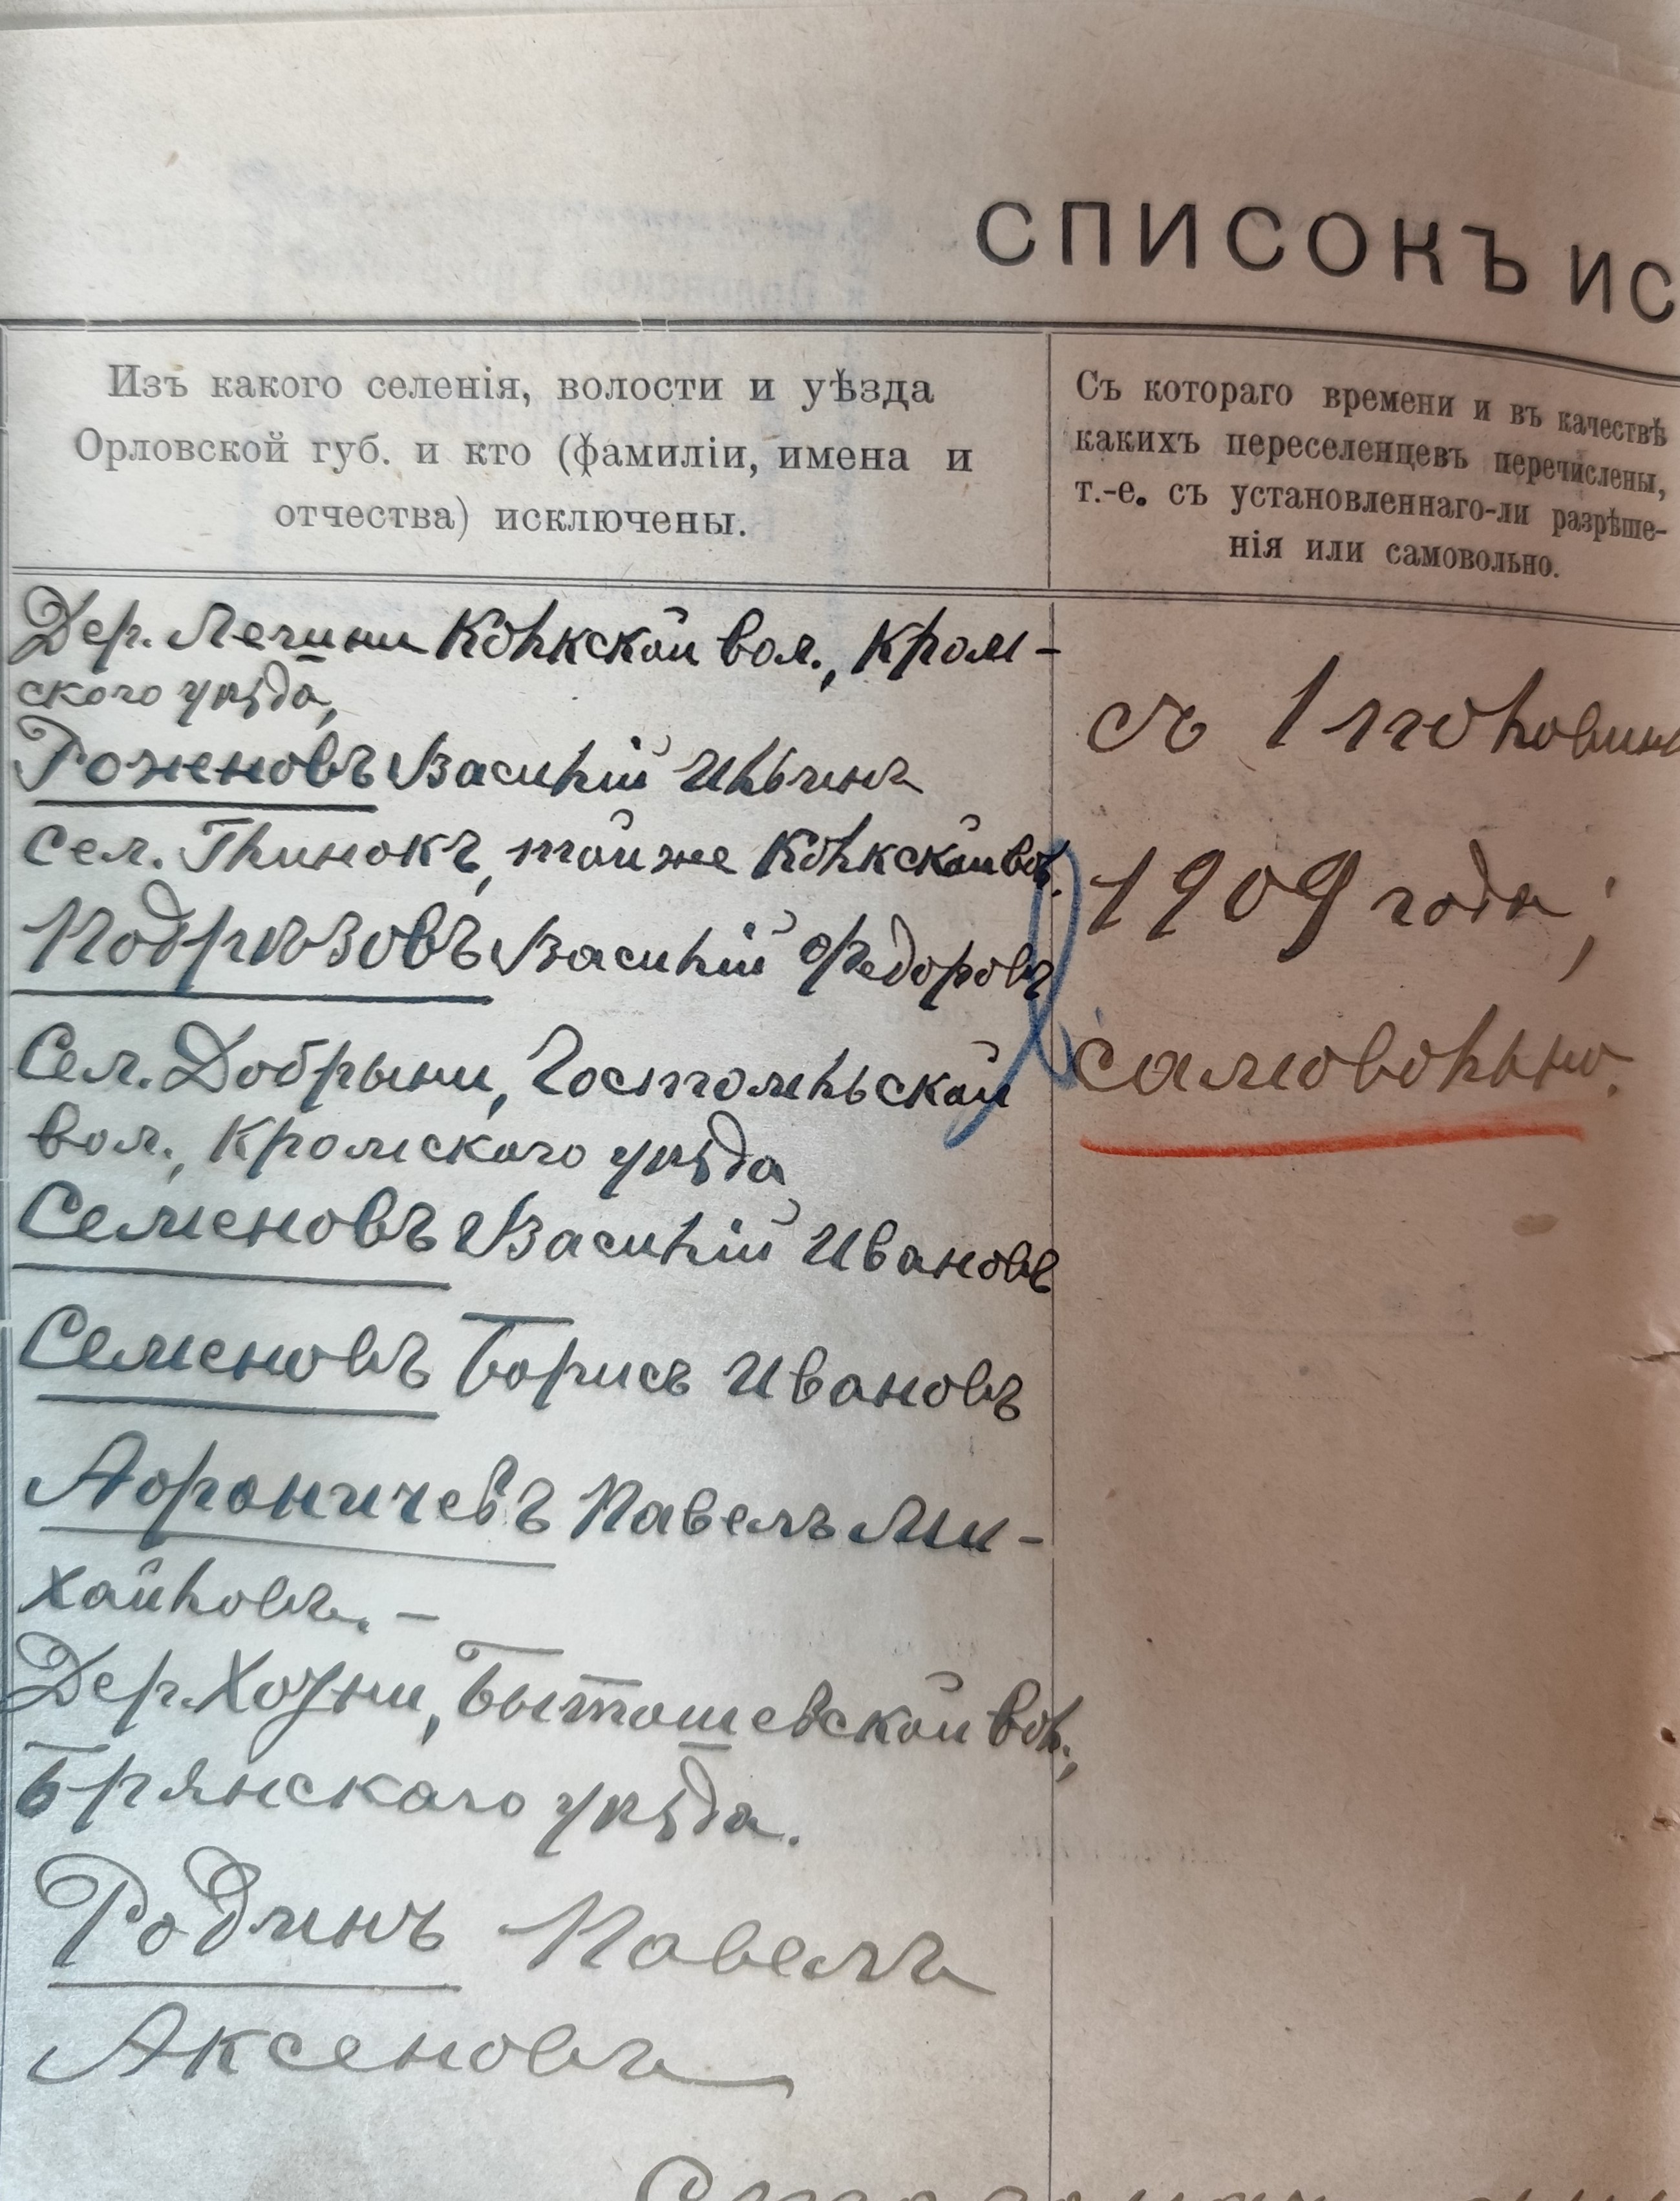 СПИСОКЪ ИС
Изъ какого селенія, волости и уѣзда
Орловской губ. и кто (фамиліи, имена и
отчества) исключены.
Съ котораго времени и въ качествѣ
какихъ переселенцевъ перечислены,
т.-е. съ установленнаго-ли разрѣше-
нія или самовольно.
Дер. Лечини Колкской вол., Кром-
скаго уѣзда,
Роженовъ Василій Ильинъ
Сел. Глинокъ, той же Колкской вол.
Подрѣзовъ Василій Федоровъ
Сел. Добрыни, Гостомльской
вол., Кромскаго уѣзда
Семеновъ Василій Ивановъ
Семеновъ Борисъ Ивановъ
Афоничевъ Павелъ Ми-
хайловъ. —
Дер. Хотни, Бытошевской вол.,
Брянскаго уѣзда.
Родинъ Павелъ
Аксеновъ
съ 1 половины
1909 года;
самовольно.